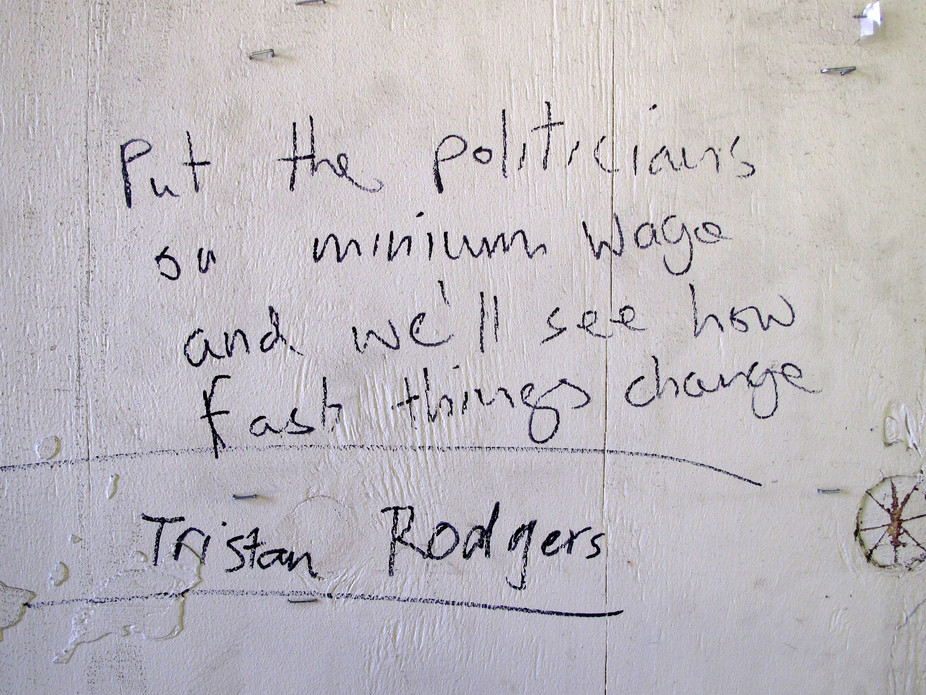 Put the politicians
on minium wage
and we'll see how
fast things change
Tristan Rodgers